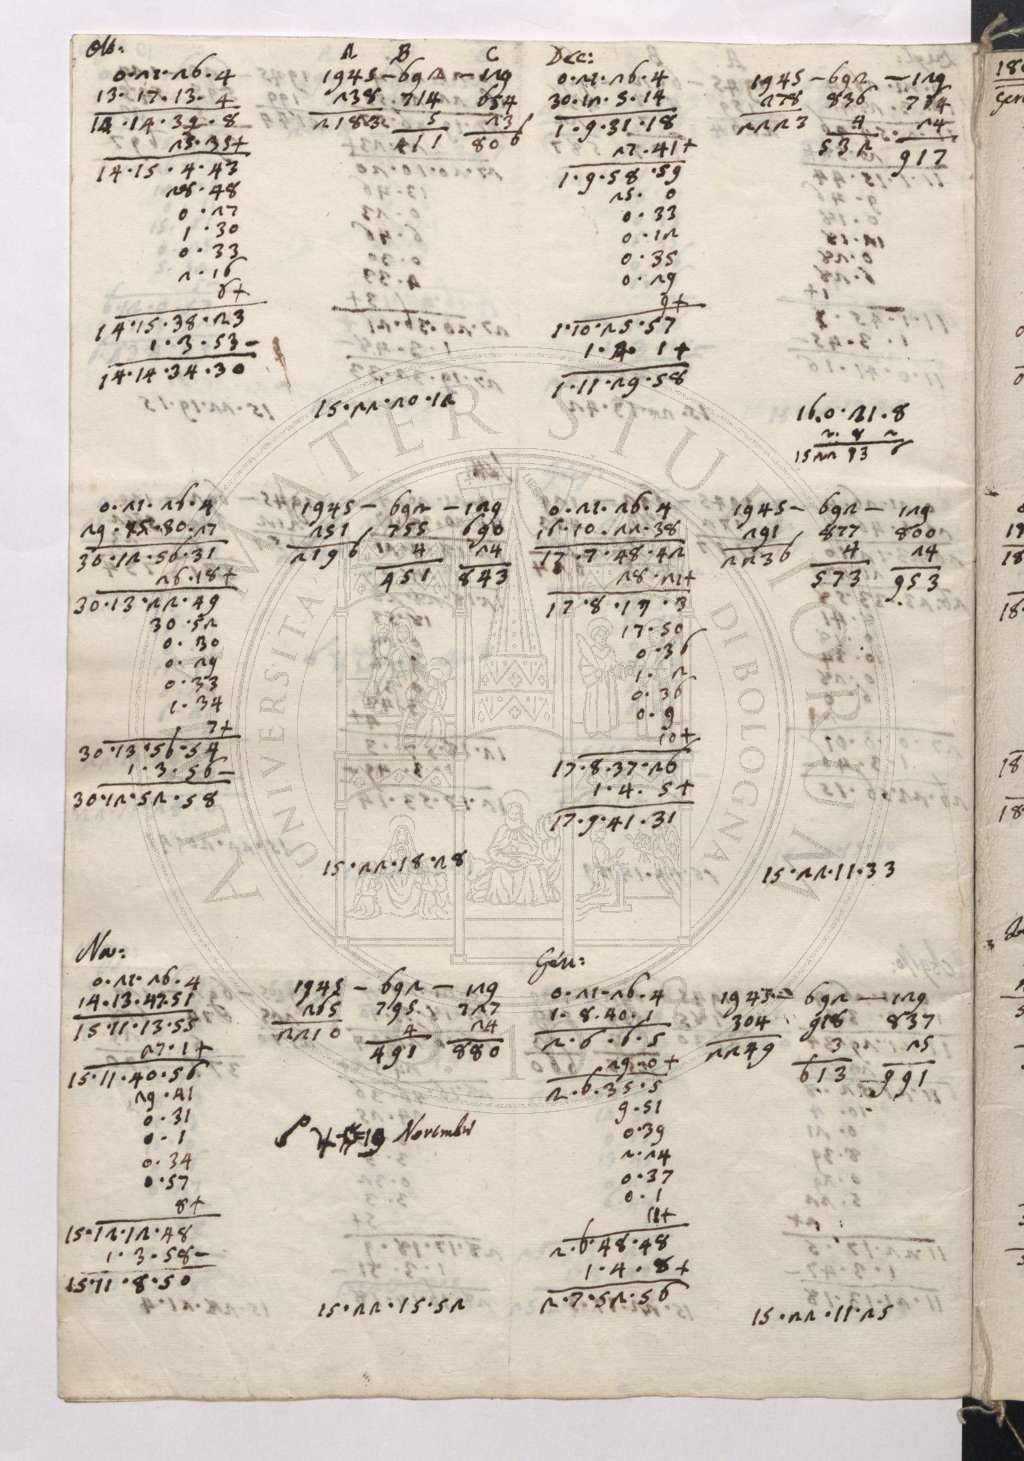 Otb:
0.21.26.4
13.17.13.4
14.14.39.8
25.35+
14.15.4.43
28.48
0.27
1.30
0.33
2.16
6+
14.15.38.23
1.3.53-
14.14.34.30
A B C
1945-692-129
238 714 654
2183 5 23
411 806
15.22.20.12
Dec:
0.21.26.4
30.12.5.14
1.9.31.18
27.41+
1.9.58.59
25.0
0.33
0.12
0.35
0.29
9+
1.10.25.57
1.4.1+
1.11.29.58
1945-692-129
278 836 764
2223 4 24
532 917
16.0.21.8
15 22 93 6
0.21.26.4
29.15.30.27
30.12.56.31
26.18+
30.13.22.49
30.52
0.30
0.29
0.33
1.34
7+
30.13.56.54
1.3.56-
30.12.52.58
1945-692-129
251 755 690
2196 4 24
451 843
15.22.18.28
0.21.26.4
16.10.22.38
17.7.48.42
28.21+
17.8.17.3
17.50
0.36
1.2
0.36
0.9
10+
17.8.37.26
1.4.5+
17.9.41.31
1945-692-129
291 877 800
2236 4 24
573 953
15.22.11.33
Nov:
0.21.26.4
14.13.47.51
15.11.13.55
27.1+
15.11.40.56
29.41
0.31
0.1
0.34
0.57
8+
15.12.12.48
1.3.58-
15.11.8.50
1945-692-129
265 795 727
2210 4 24
491 880
19 Novembr
15.22.15.52
Gen:
0.21.26.4
1.8.40.1
2.6.6.5
29.0+
2.6.35.5
9.51
0.39
2.24
0.37
0.1
11+
2.6.48.48
1.4.8+
2.7.52.56
1945-692-129
304 918 837
2249 3 25
613 991
15.22.11.25
ALMA MATER STUDIORUM
UNIVERSITÀ DI BOLOGNA